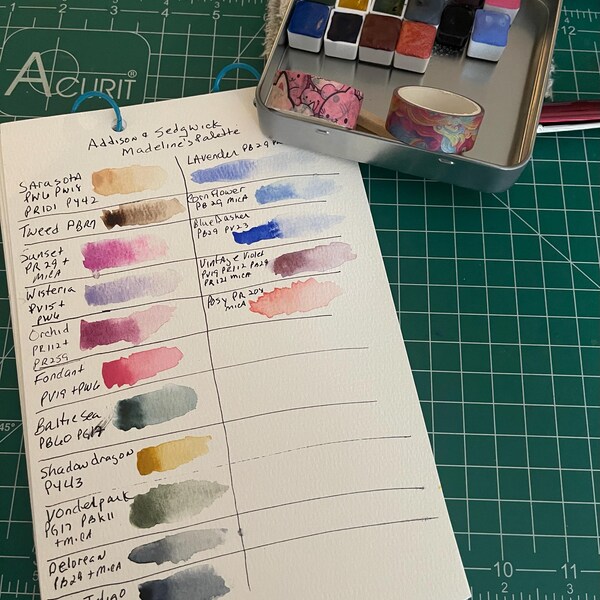 ACURIT
5
12
Addison & Sedgwick
Madeline's Palette
Sarasota
PW6 PW14
PR101 PY42
Tweed PBR7
Sunset
PR 29 +
mica
Wisteria
PV15 +
PW6
Orchid
PR112+
PR259
Fondant
PV19 +PW6
Baltic Sea
PB60 PG17
Shadowdragon
PY43
Vondelpark
PG17 PBK11
+ mica
Delorean
PB29 + mica
Indigo
Lavender PB29
Cornflower
PB 29 mica
Blue Dasher
PB29 PV23
Vintage Violet
PV19 PR112 PB29
PR121 mica
Posy PR 204
mica
45°
10
11